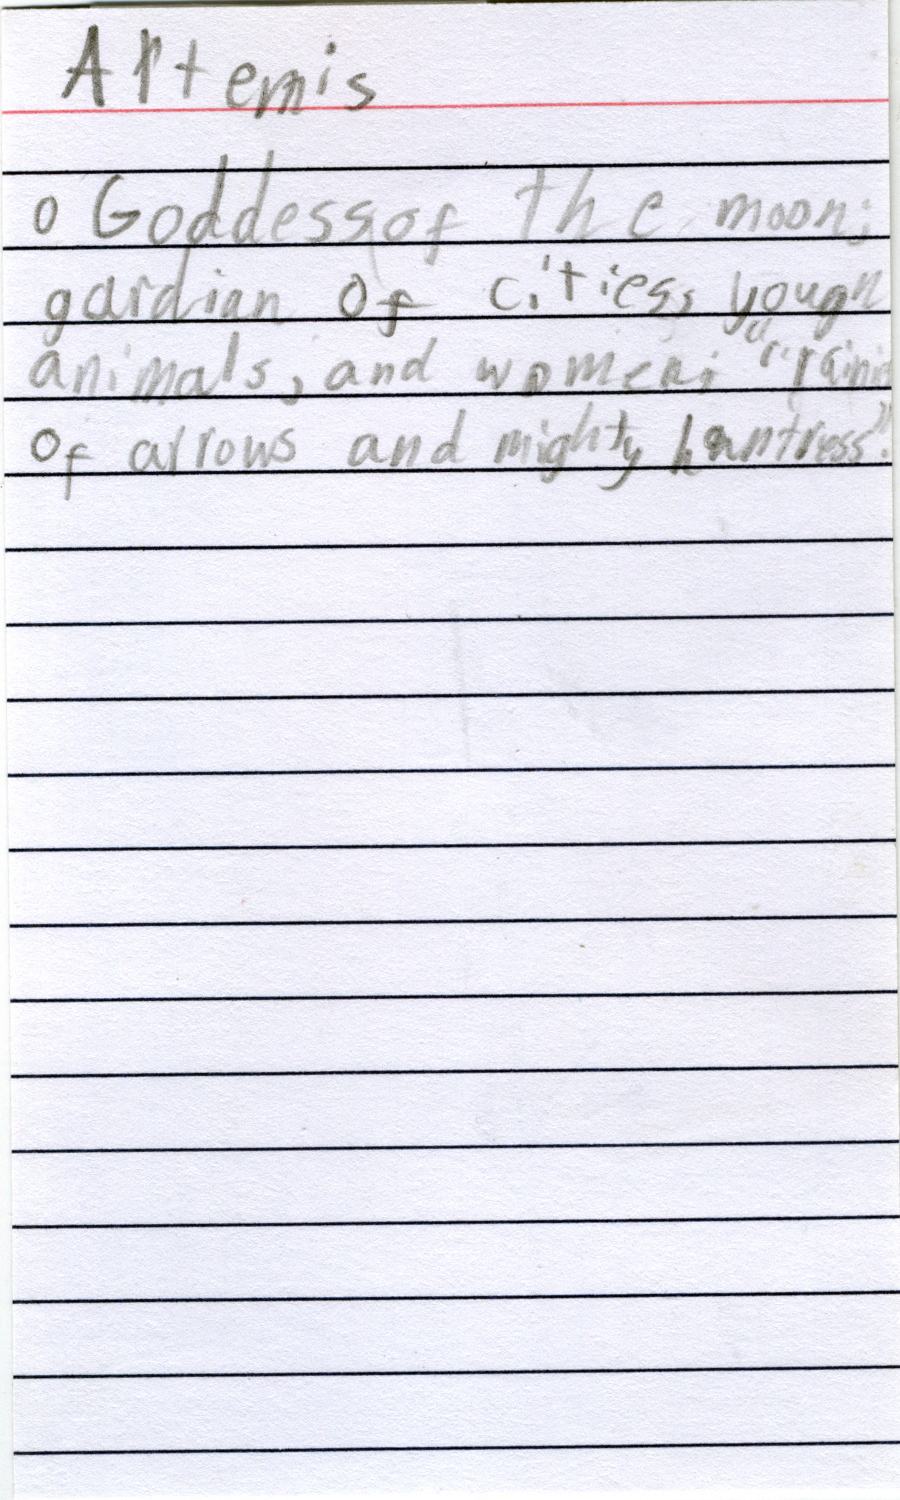 Artemis
o Goddess of the moon;
gardian of cities, yougn
animals, and women; "raini
of arrows and mighty huntress".